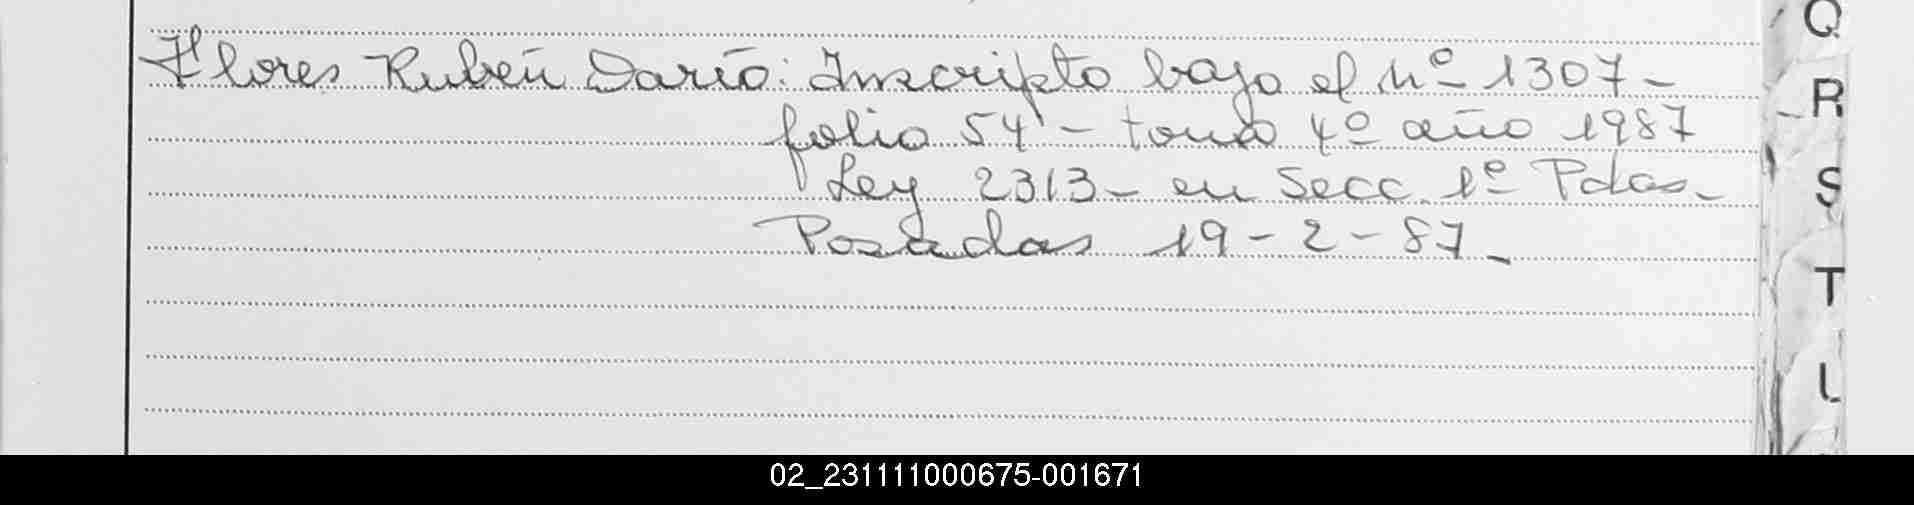 Flores Rubén Darío: Inscripto bajo el nº 1307-
folio 54 - tomo 4º año 1987
Ley 2313 - en Secc. 1º Pdas-
Posadas 19-2-87-
Q
R
S
T
U
02_231111000675-001671